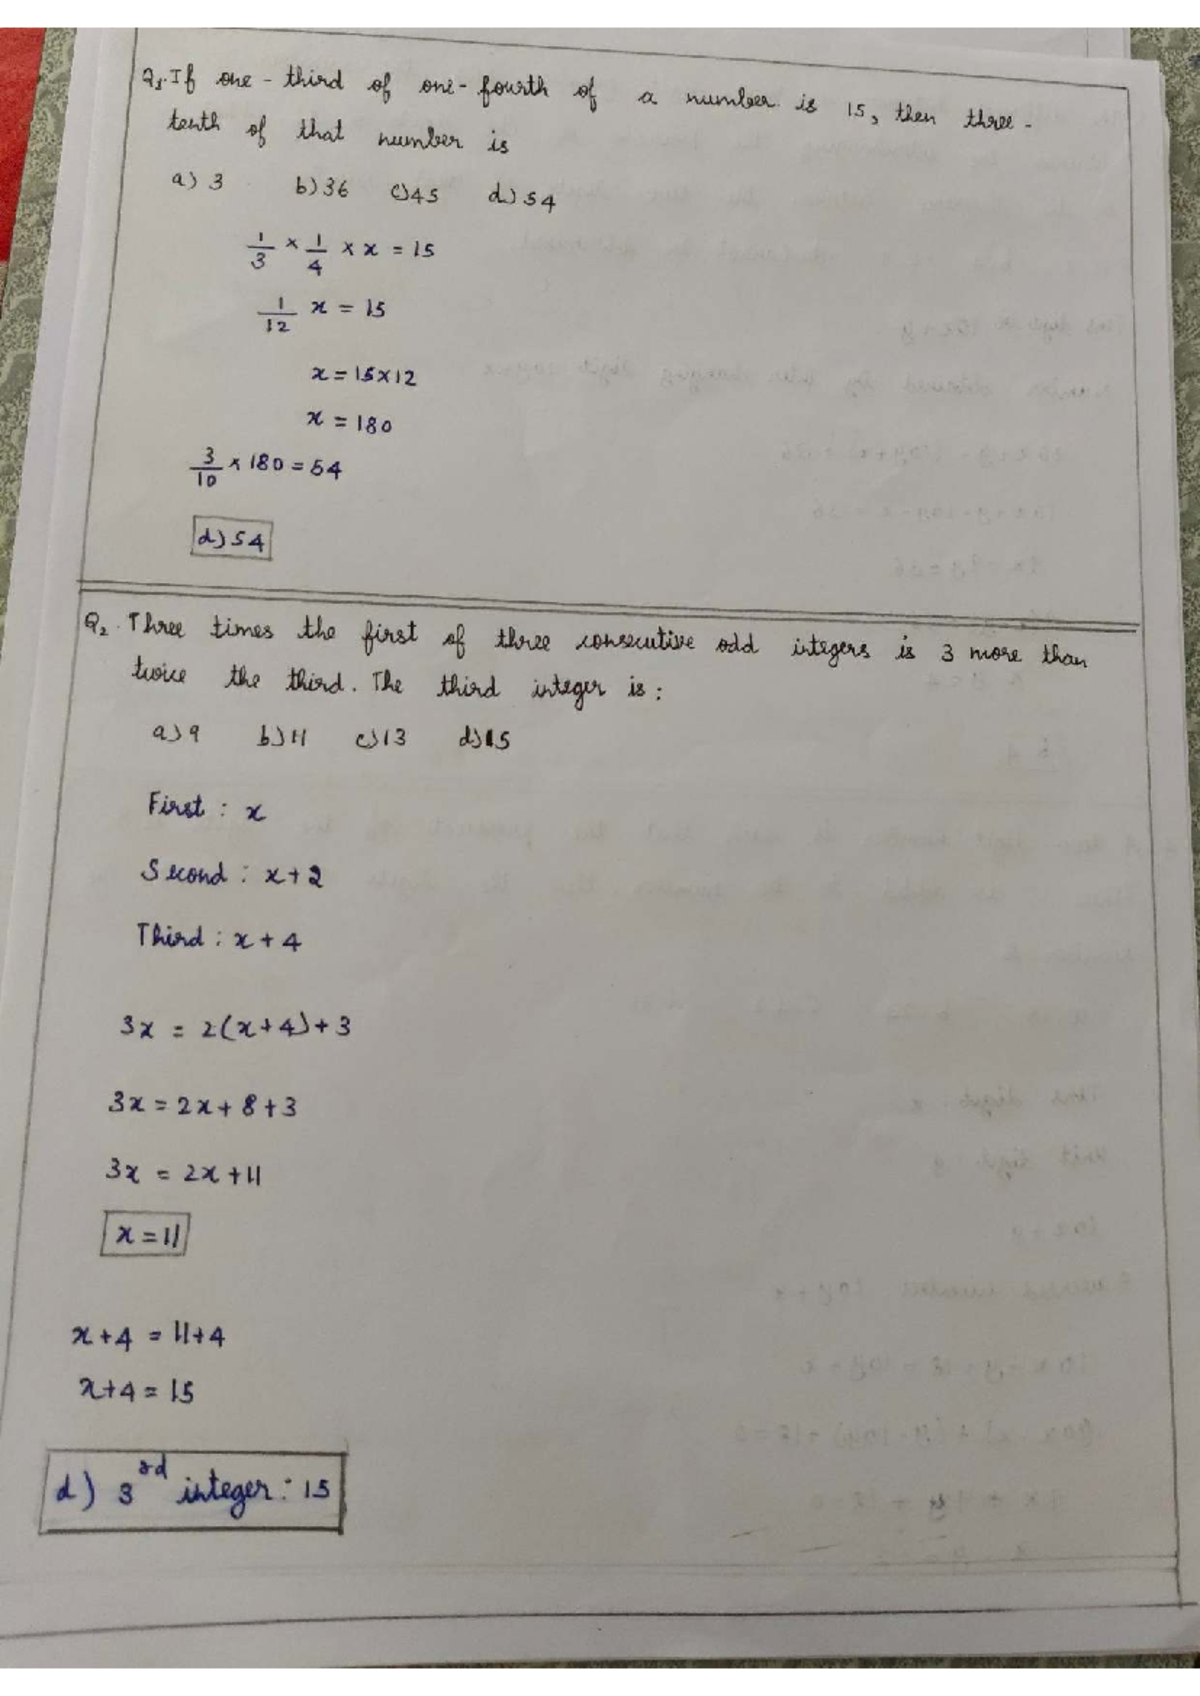 Q1. If one-third of one-fourth of a number is 15, then three-
tenth of that number is
a) 3 b) 36 c) 45 d) 54
1/3 × 1/4 × x = 15
1/12 x = 15
x = 15×12
x = 180
3/10 × 180 = 54
d) 54
Q2. Three times the first of three consecutive odd integers is 3 more than
twice the third. The third integer is:
a) 9 b) 11 c) 13 d) 15
First: x
Second: x+2
Third: x+4
3x = 2(x+4)+3
3x = 2x+8+3
3x = 2x+11
x = 11
x+4 = 11+4
x+4 = 15
d) 3rd integer: 15